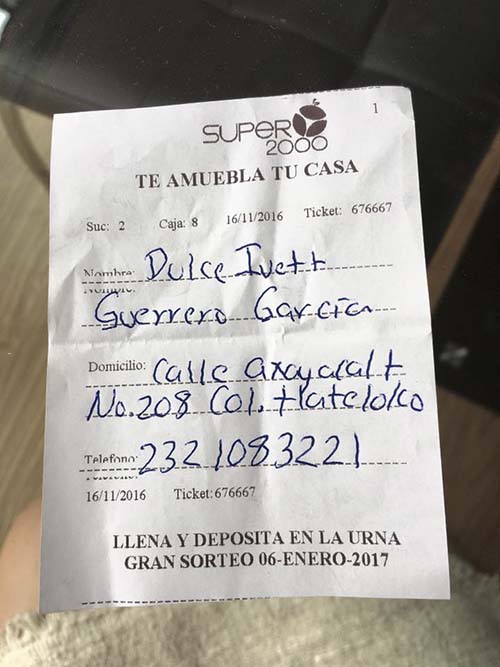 1
SUPER
2000
TE AMUEBLA TU CASA
Suc: 2 Caja: 8 16/11/2016 Ticket: 676667
Nombre: Dulce Ivett
Guerrero García
Domicilio: Calle axayacalt
No. 208 Col. tlatelolco
Telefono: 2321083221
16/11/2016 Ticket: 676667
LLENA Y DEPOSITA EN LA URNA
GRAN SORTEO 06-ENERO-2017